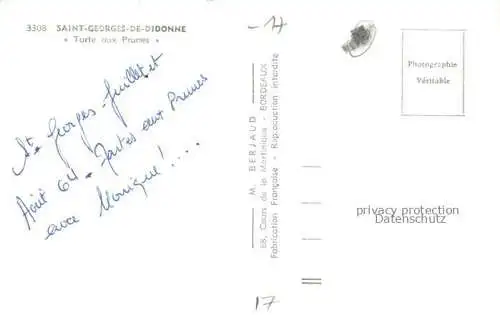 3308 SAINT-GEORGES-DE-DIDONNE
« Tarte aux Prunes »
St. Georges - Juillet et
Août 64 - Tartes aux Prunes
avec Monique! ....
M. BERJAUD - BORDEAUX
68, Cours de la Martinique - Reproduction interdite
Fabrication Française -
Photographie
Véritable
privacy protection
Datenschutz
17